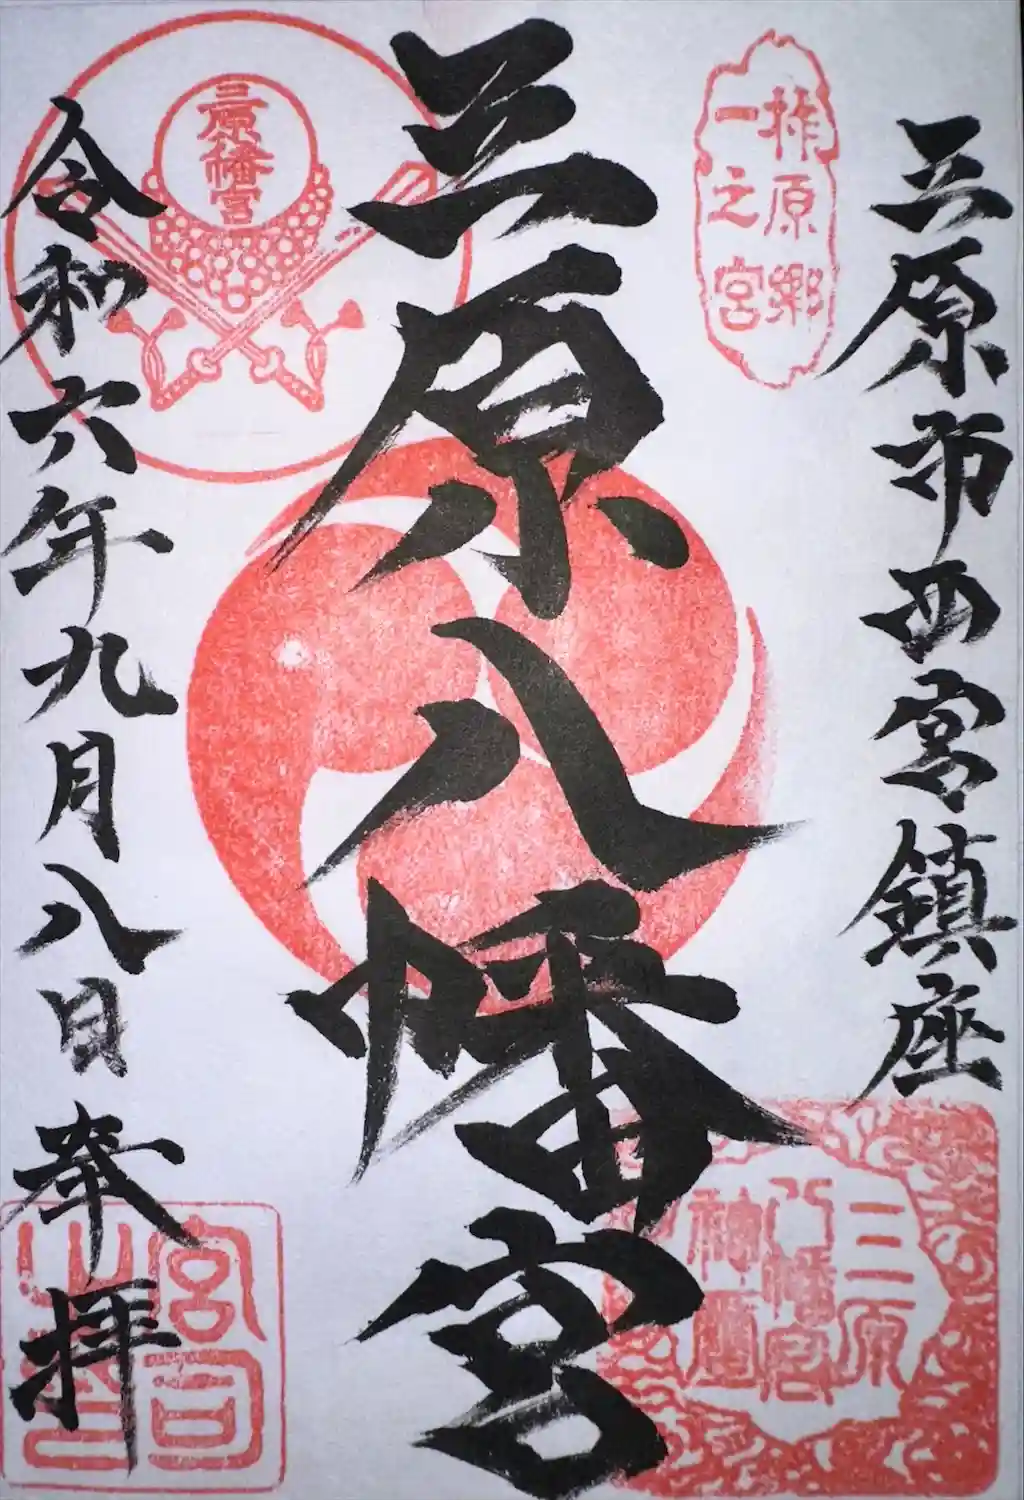 三原市西宮鎮座
柞原郷
一之宮
三原八幡宮
三原八幡宮
三原
八幡宮
神璽
令和六年九月八日奉拝
宮司
之印